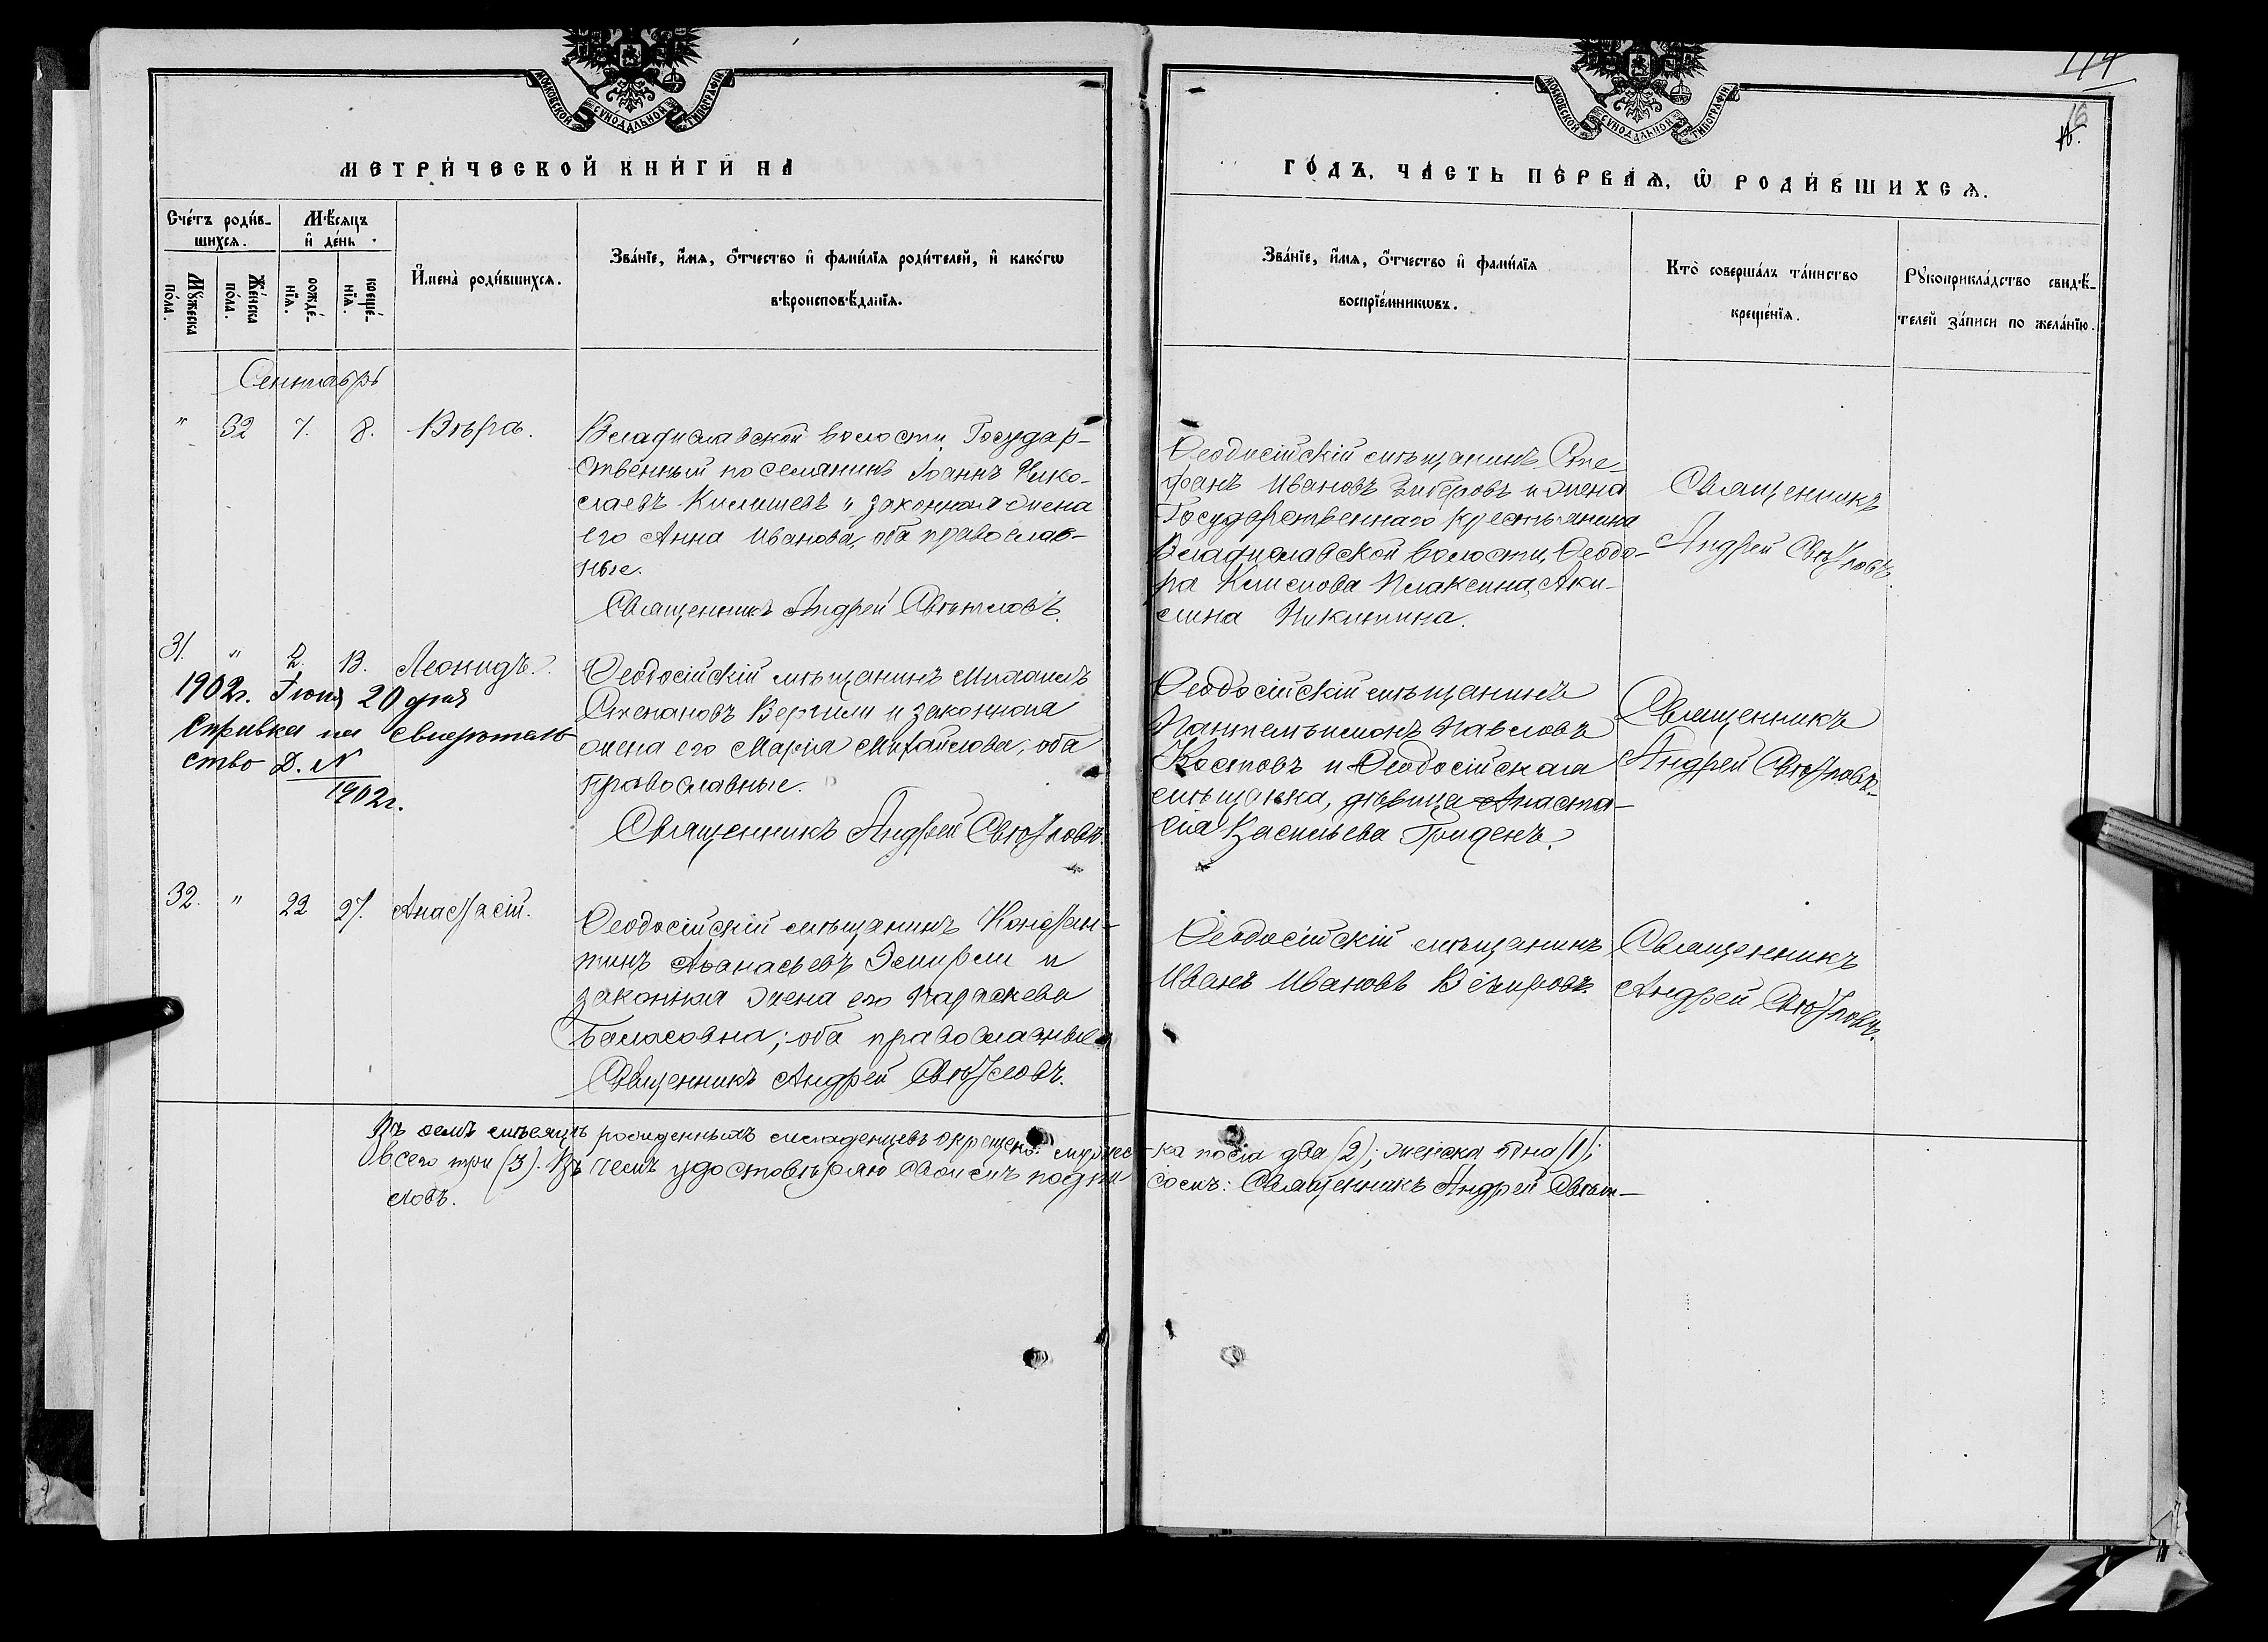 114
16
МОСКОВСКОЙ СУНОДАЛЬНОЙ ТИПОГРАФІИ
МОСКОВСКОЙ СУНОДАЛЬНОЙ ТИПОГРАФІИ
МЕТРИ́ЧЕСКОЙ КНИ́ГИ НА
ГО́ДЪ, ЧА́СТЬ ПЕ́РВАѦ, Ѡ҆ РОДИ́ВШИХСѦ.
Сче́тъ роди́в-
шихсѧ.
Мѣ́сѧцъ
и҆ де́нь
Мꙋ́жеска
по́ла.
Же́нска
по́ла.
рожде́-
нїѧ.
креще́-
нїѧ.
И҆мена̀ роди́вшихсѧ.
Зва́нїе, и҆́мѧ, ѻ҆́тчество и҆ фами́лїѧ роди́телей, и҆ како́гѡ
вѣроисповѣ́данїѧ.
Зва́нїе, и҆́мѧ, ѻ҆́тчество и҆ фами́лїѧ
воспрїе́мникѡвъ.
Кто̀ соверша́лъ та́инство
креще́нїѧ.
Рꙋкоприкла́дство свидѣ́-
телей за́писи по жела́нїю.
Сентябрь
" 32 7. 8. Вѣра.
Владиславской волости Государ-
ственный поселянинъ Іоаннъ Нико-
лаевъ и законная жена
его Анна Иванова, оба православ-
ные.
Священникъ Андрей Свѣтловъ.
Ѳеодосійскій мѣщанинъ Сте-
фанъ Ивановъ и жена
Государственнаго крестьянина
Владиславской волости, Ѳеодо-
ра Климова Плаксина, Аки-
лина Никитина.
Священникъ
Андрей Свѣтловъ.
31. " 2. 13. Леонидъ.
1902г. Іюня 20 дня
Справка на свидѣтель-
ство Д. N
1902г.
Ѳеодосійскій мѣщанинъ Михаилъ
Степановъ Вергили и законная
жена его Марія Михайлова, оба
православные.
Священникъ Андрей Свѣтловъ.
Ѳеодосійскій мѣщанинъ
Пантелеимонъ Павловъ
Костовъ и Ѳеодосійская
мѣщанка, дѣвица Анаста-
сія Васильева Гриденъ.
Священникъ
Андрей Свѣтловъ.
32. " 22 27. Анастасій.
Ѳеодосійскій мѣщанинъ Констан-
тинъ Аѳанасьевъ и
законная жена его Параскева
оба православные
Священникъ Андрей Свѣтловъ.
Ѳеодосійскій мѣщанинъ
Иванъ Ивановъ
Священникъ
Андрей Свѣтловъ.
Въ семъ мѣсяцѣ рожденныхъ младенцевъ окрещено: мужес-ка пола два (2); женска одна (1);
Всего три (3). Въ чемъ удостовѣряю своимъ подпи-сомъ: Священникъ Андрей Свѣт-
ловъ.